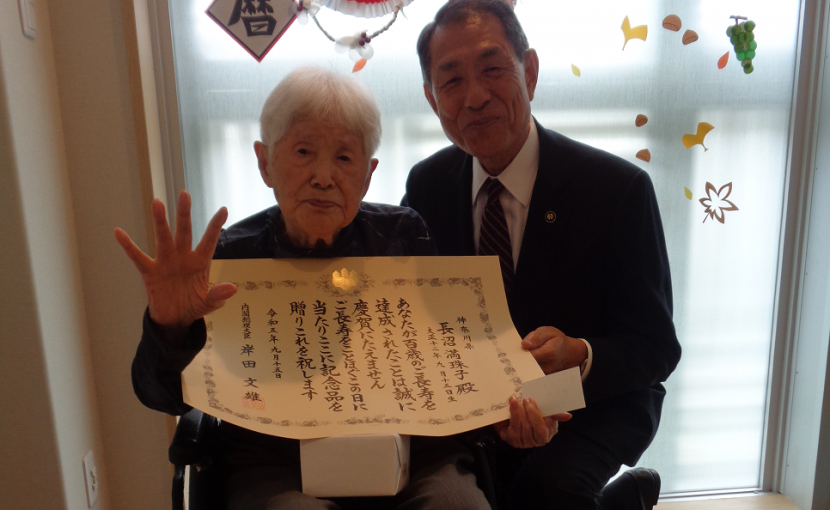 暦
神奈川県
長沼 満珠子 殿
大正十二年 九月
あなたが百歳のご長寿を
達成されたことは誠に
慶賀にたえません
ご長寿をことほぐこの日に
当たりここに記念品を
贈りこれを祝します
令和五年九月十五日
内閣総理大臣 岸田 文雄